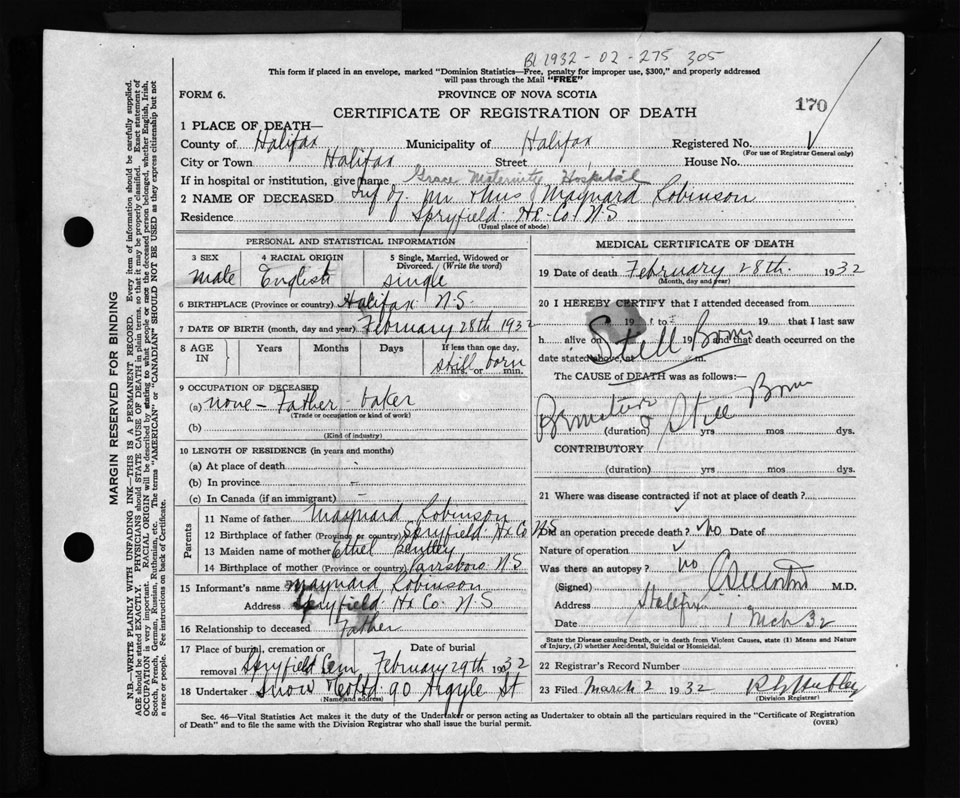 B1 1932 - 02 - 275 305
This form if placed in an envelope, marked "Dominion Statistics—Free, penalty for improper use, $300," and properly addressed
will pass through the Mail "FREE"
FORM 6.
PROVINCE OF NOVA SCOTIA
170
CERTIFICATE OF REGISTRATION OF DEATH
1 PLACE OF DEATH—
County of Halifax Municipality of Halifax Registered No.
(For use of Registrar General only)
City or Town Halifax Street House No.
If in hospital or institution, give name Grace Maternity Hospital
2 NAME OF DECEASED Inf of Mr & Mrs Maynard Robinson
Residence Spryfield Hx Co N S
(Usual place of abode)
PERSONAL AND STATISTICAL INFORMATION
3 SEX 4 RACIAL ORIGIN 5 Single, Married, Widowed or
Divorced. (Write the word)
male English single
6 BIRTHPLACE (Province or country) Halifax N.S.
7 DATE OF BIRTH (month, day and year) February 28th 1932
8 AGE IN Years Months Days If less than one day,
still born
hrs. or min.
9 OCCUPATION OF DECEASED
(a) none - Father - baker
(Trade or occupation or kind of work)
(b)
(Kind of industry)
10 LENGTH OF RESIDENCE (in years and months)
(a) At place of death -
(b) In province -
(c) In Canada (if an immigrant) -
Parents
11 Name of father Maynard Robinson
12 Birthplace of father (Province or country) Spryfield Hx Co N S
13 Maiden name of mother Ethel Bentley
14 Birthplace of mother (Province or country) Parrsboro N S
15 Informant's name Maynard Robinson
Address Spryfield Hx Co N S
16 Relationship to deceased Father
17 Place of burial, cremation or
removal Spryfield Cem February 29th 1932
18 Undertaker Snow & Co Ltd 90 Argyle St
(Name and address)
MEDICAL CERTIFICATE OF DEATH
19 Date of death February 28th. 1932
(Month, day and year)
20 I HEREBY CERTIFY that I attended deceased from
19 to 19 that I last saw
Still Born
h alive on 19 and that death occurred on the
date stated above, at m.
The CAUSE of DEATH was as follows:—
Still Born
(duration) yrs mos dys.
CONTRIBUTORY
(duration) yrs mos dys.
21 Where was disease contracted if not at place of death?
Did an operation precede death? No Date of
Nature of operation
Was there an autopsy? no
(Signed) M.D.
Address Halifax
Date 1 Mch 32
State the Disease causing Death, or in death from Violent Causes, state (1) Means and Nature
of Injury, (2) whether Accidental, Suicidal or Homicidal.
22 Registrar's Record Number
23 Filed March 2 1932
(Division Registrar)
Sec. 46—Vital Statistics Act makes it the duty of the Undertaker or person acting as Undertaker to obtain all the particulars required in the "Certificate of Registration
of Death" and to file the same with the Division Registrar who shall issue the burial permit.
(OVER)
MARGIN RESERVED FOR BINDING
N.B.—WRITE PLAINLY WITH UNFADING INK—THIS IS A PERMANENT RECORD. Every item of information should be carefully supplied.
AGE should be stated EXACTLY. PHYSICIANS should STATE CAUSE OF DEATH in plain terms, so that it may be properly classified. Exact statement of
OCCUPATION is very important. RACIAL ORIGIN will be described by stating to what people or race the deceased person belonged, whether English, Irish,
Scotch, French, German, Russian, Ruthenian, etc. The terms "AMERICAN" or "CANADIAN" SHOULD NOT BE USED as they express citizenship but not
a race or people. Fee instructions on back of Certificate.